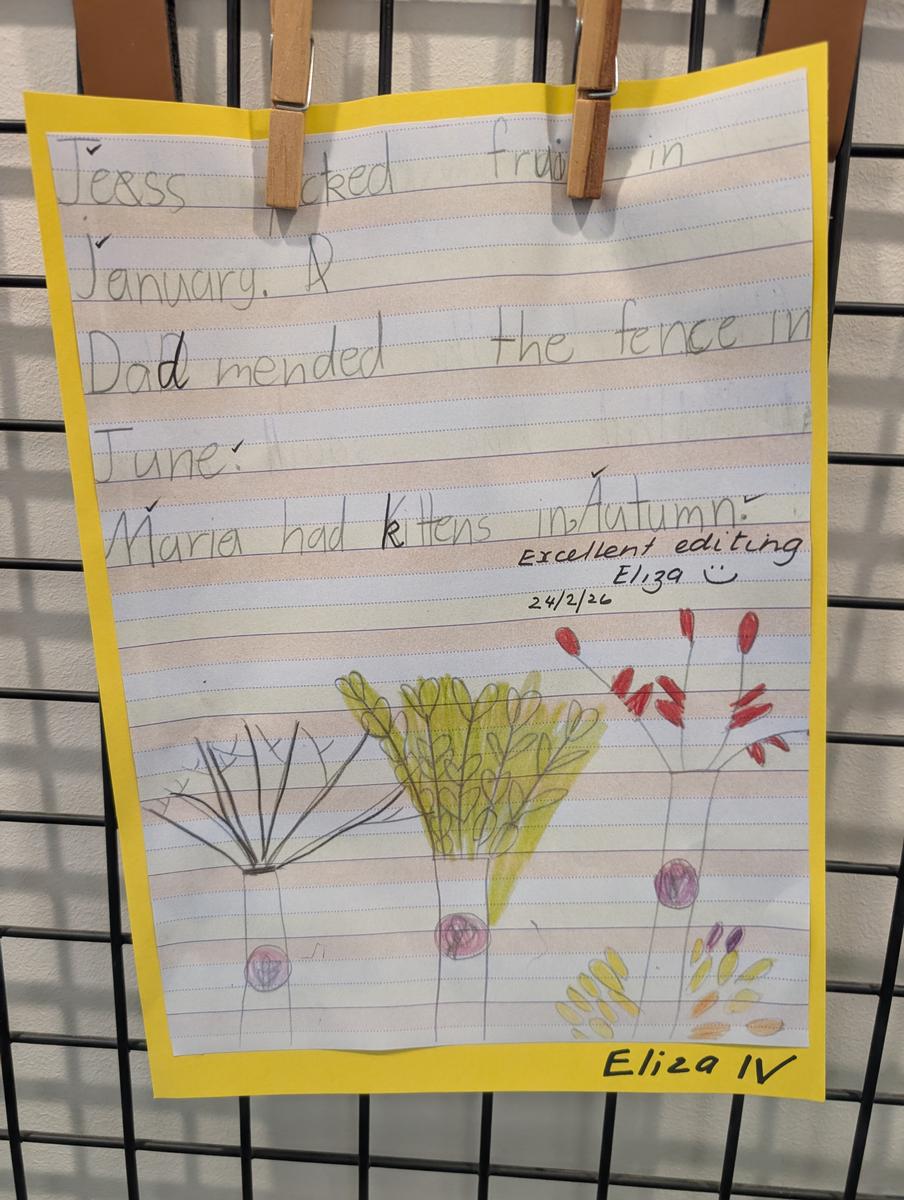 Jess cked frui in
January.
Dad mended the fence in
June.
Maria had kittens in Autumn.
Excellent editing
Eliza
24/2/26
Eliza IV